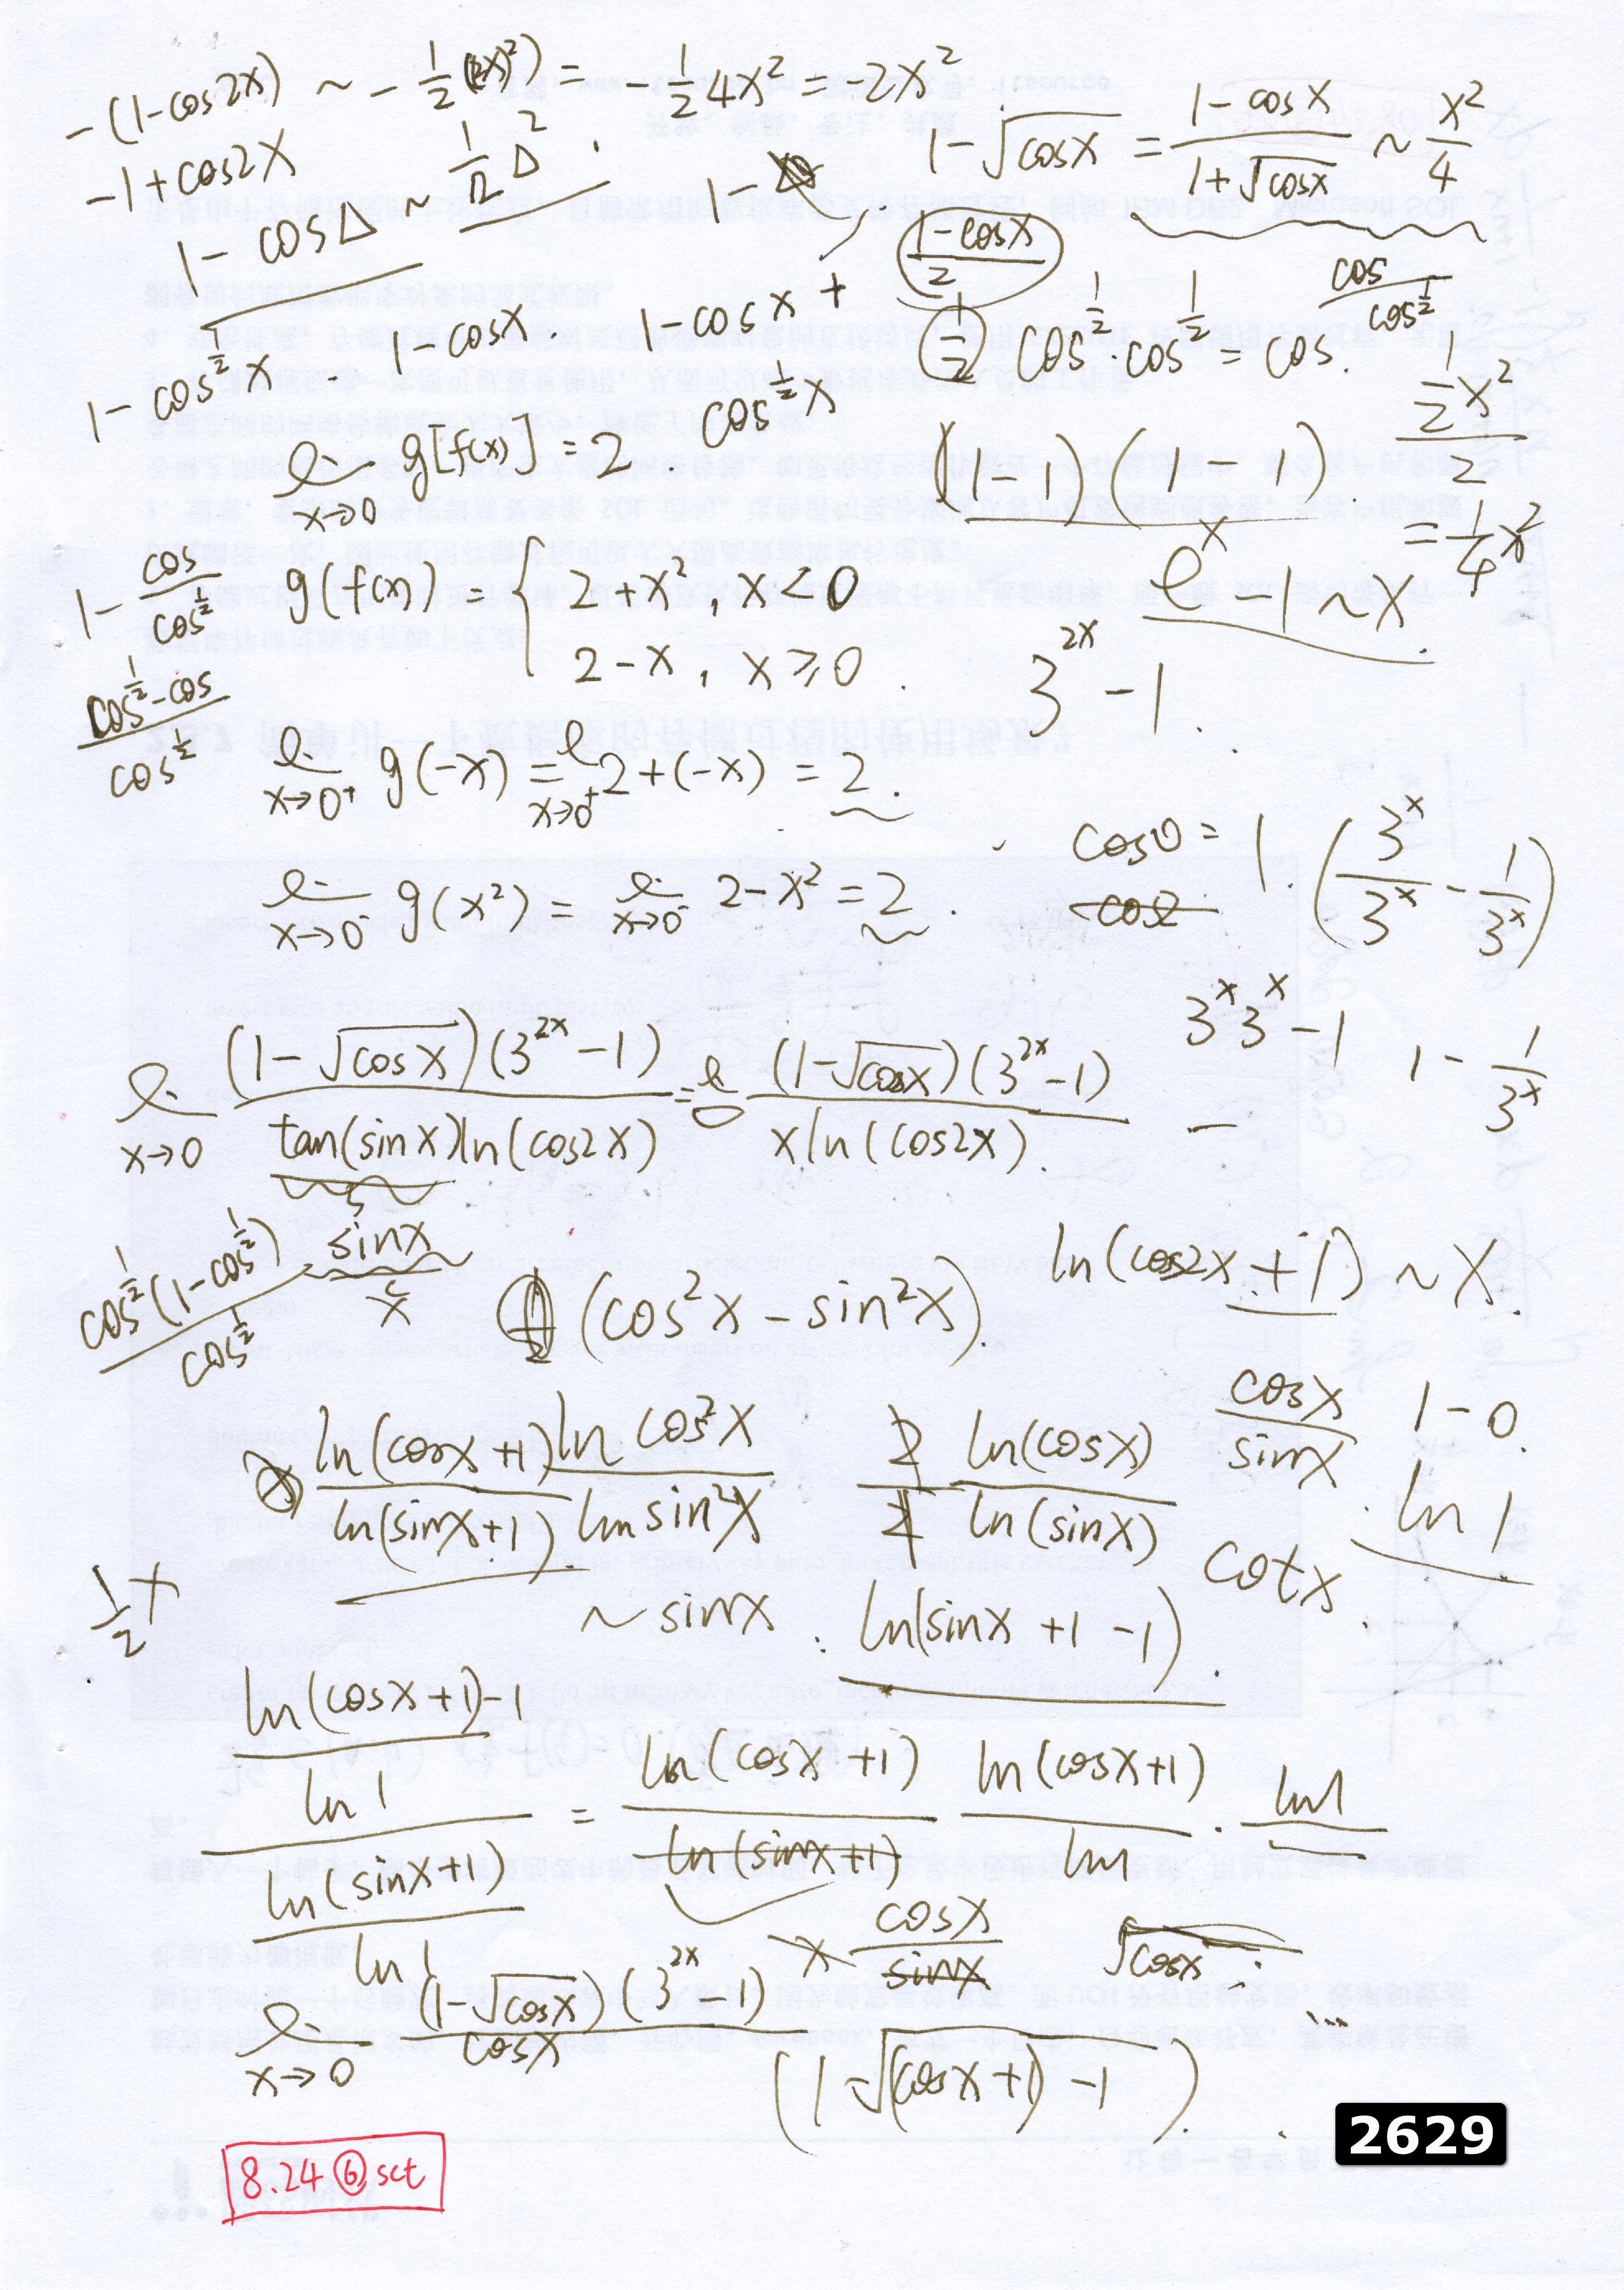 -(1-cos2x) ~ -1/2(2x)²) = -1/2 4x² = -2x²
-1+cos2x
1-cosΔ ~ 1/2 Δ²
1-
1-√cosx = (1-cosx)/(1+√cosx) ~ x²/4
(1-cosx)/2
1-cos^(1/2) x . 1-cosx . 1-cosx +
cos^(1/2) x
1/2 cos^(1/2) · cos^(1/2) = cos.
cos/cos^(1/2)
(1/2 x²)/2
= 1/4 x²
lim x→0 g[f(x)] = 2 .
(1-1)(1 1) .
e^x -1 ~ x .
1 - cos/cos^(1/2)
g(f(x)) = { 2+x² , x<0
2-x , x≥0 .
3^(2x) -1 .
(cos^(1/2) - cos)/cos^(1/2)
lim x→0⁺ g(-x) = lim x→0⁺ 2+(-x) = 2 .
cos0 = 1 . (3^x/3^x - 1/3^x)
cos2
lim x→0⁻ g(x²) = lim x→0⁻ 2-x² = 2 .
3^x 3^x -1
1 - 1/3^x
lim x→0 (1-√cosx)(3^(2x)-1) / tan(sinx)ln(cos2x) = lim 0 (1-√cosx)(3^(2x)-1) / x ln(cos2x) .
cos^(1/2)(1-cos^(1/2)) / cos^(1/2)
sinx
x
(cos²x - sin²x) .
ln(cos2x+1) ~ x .
ln(cosx+1)/ln(sinx+1) ln cos²x / ln sin²x
2/2 ln(cosx)/ln(sinx)
cosx/sinx
1-0 .
ln 1
cotx .
1/2 x
~ sinx . ln(sinx+1-1) .
ln(cosx+1)-1
ln1
ln(sinx+1)
ln1
= ln(cosx+1)/ln(sinx+1)
ln(cosx+1)/ln1 · ln1
x cosx/sinx
√cosx
lim x→0 (1-√cosx)(3^(2x)-1)
cosx
(1-√(cosx+1)-1) .
2629
8.24 ⑥ sct